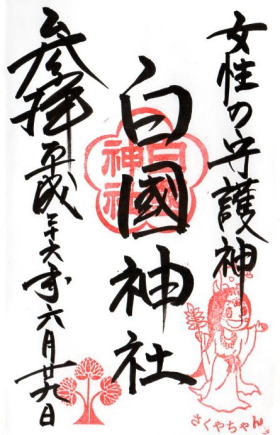 女性の守護神
白國神社
白國
神社
参拝
平成二十六年六月廿九日
さくやちゃん